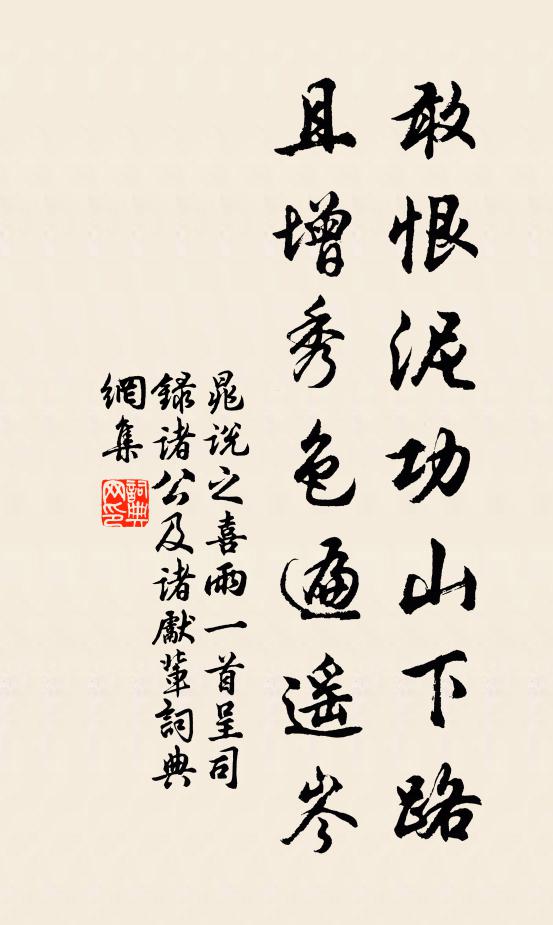 敢恨泥功山下路
且增秀色遍遥岑
晁说之喜雨一首呈司
録诸公及诸獻輩詞典
網集
詞典
网印